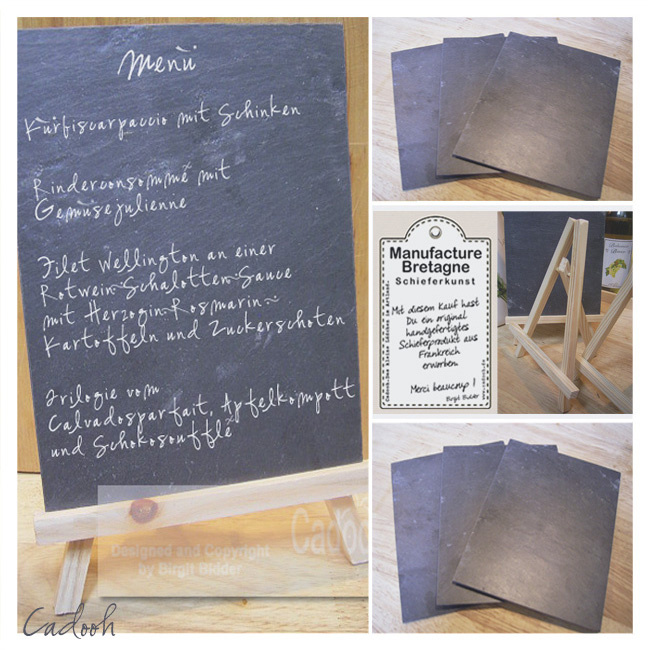 Menü
Kürbiscarpaccio mit Schinken
Rinderconsommé mit
Gemüsejulienne
Filet Wellington an einer
Rotwein-Schalotten-Sauce
mit Herzogin-Rosmarin-
Kartoffeln und Zuckerschoten
Trilogie vom
Calvadosparfait, Apfelkompott
und Schokosoufflé
Designed and Copyright
by Birgit Bidder
Cadooh
Cadooh
Manufacture
Bretagne
Schieferkunst
Mit diesem Kauf hast
Du ein original
handgefertigtes
Schieferprodukt aus
Frankreich
erworben.
Merci beaucoup !
Birgit Bidder